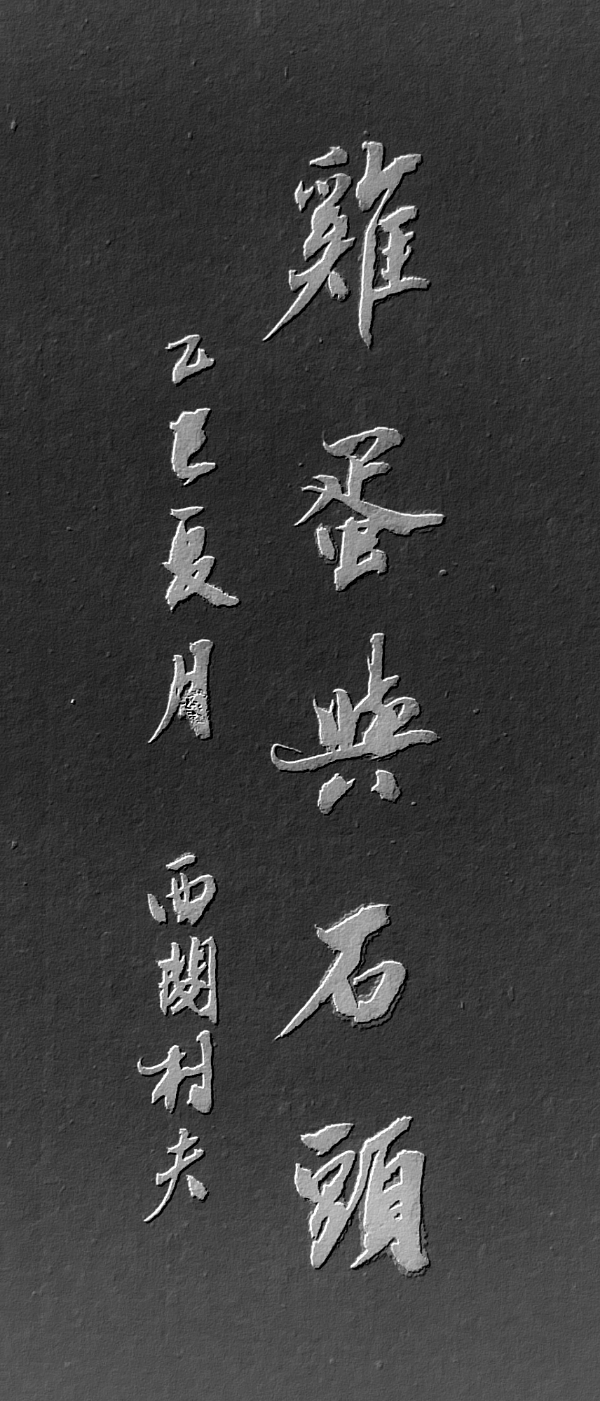 雞蛋與石頭
乙巳夏月 西關村夫